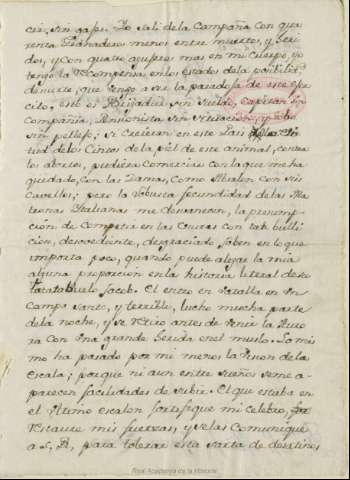 cer, sin gafes. Yo salí de la Campaña con qua
renta Granaderos menos entre muertos, y heri
dos, y con quatro agujeros mas en mi Cuerpo, yo
tengo la recompensa en los estados de la posibilid.
de suerte, que vengo a ser la paradoja de este exer
cito, esto es Brigadier sin sueldo, Capitan sin
Compañia, Pensionista sin
sin pellejo, si creieran en este Pais la
tud de los Cintos de la piel de este animal, contra
los abortos, pudiera comerciar con la que me ha
quedado, con las Damas, como Absalon con sus
cavellos; pero la robusta fecundidad de las Ma
tronas Italianas me desvanecen, la presump
cion de competir en las Cortes con tal
cien, desobediente, desgraciado Joben en lo que
importa poco, quando puede alegar la mia
alguna proporcion en la historia literal de su
tatarabuelo Jacob. El entro en Batalla en un
Campo santo, y terrible, lucho mucha parte
de la noche, y se retiro antes de venir la Auro
ra con una grande herida en el muslo. Lo mis
mo ha pasado por mi menos la vision de la
Escala; porque ni aun entre sueños se me a-
parecen facilidades de subir. El que estaba en
el ultimo escalon fortifique mi celebro,
restaure mis fuerzas, y se las comunique
a S. R, para tolerar esta sarta de desatinos
Real Academia de la Historia